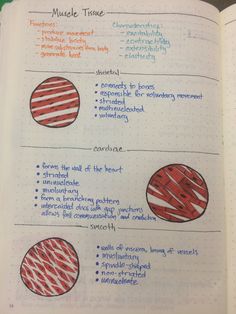 Muscle Tissue
Functions:
- produce movement
- stabilize body
- move substances thru body
- generate heat
Characteristics:
- excitability
- contractility
- extensibility
- elasticity
skeletal
• connects to bones
• responsible for voluntary movement
• striated
• multinucleated
• voluntary
cardiac
• forms the wall of the heart
• striated
• uninucleate
• involuntary
• form a branching pattern
• intercalated discs with gap junctions
allows fast communication and conducting
smooth
• walls of viscera, lining of vessels
• involuntary
• spindle-shaped
• non-striated
• uninucleate